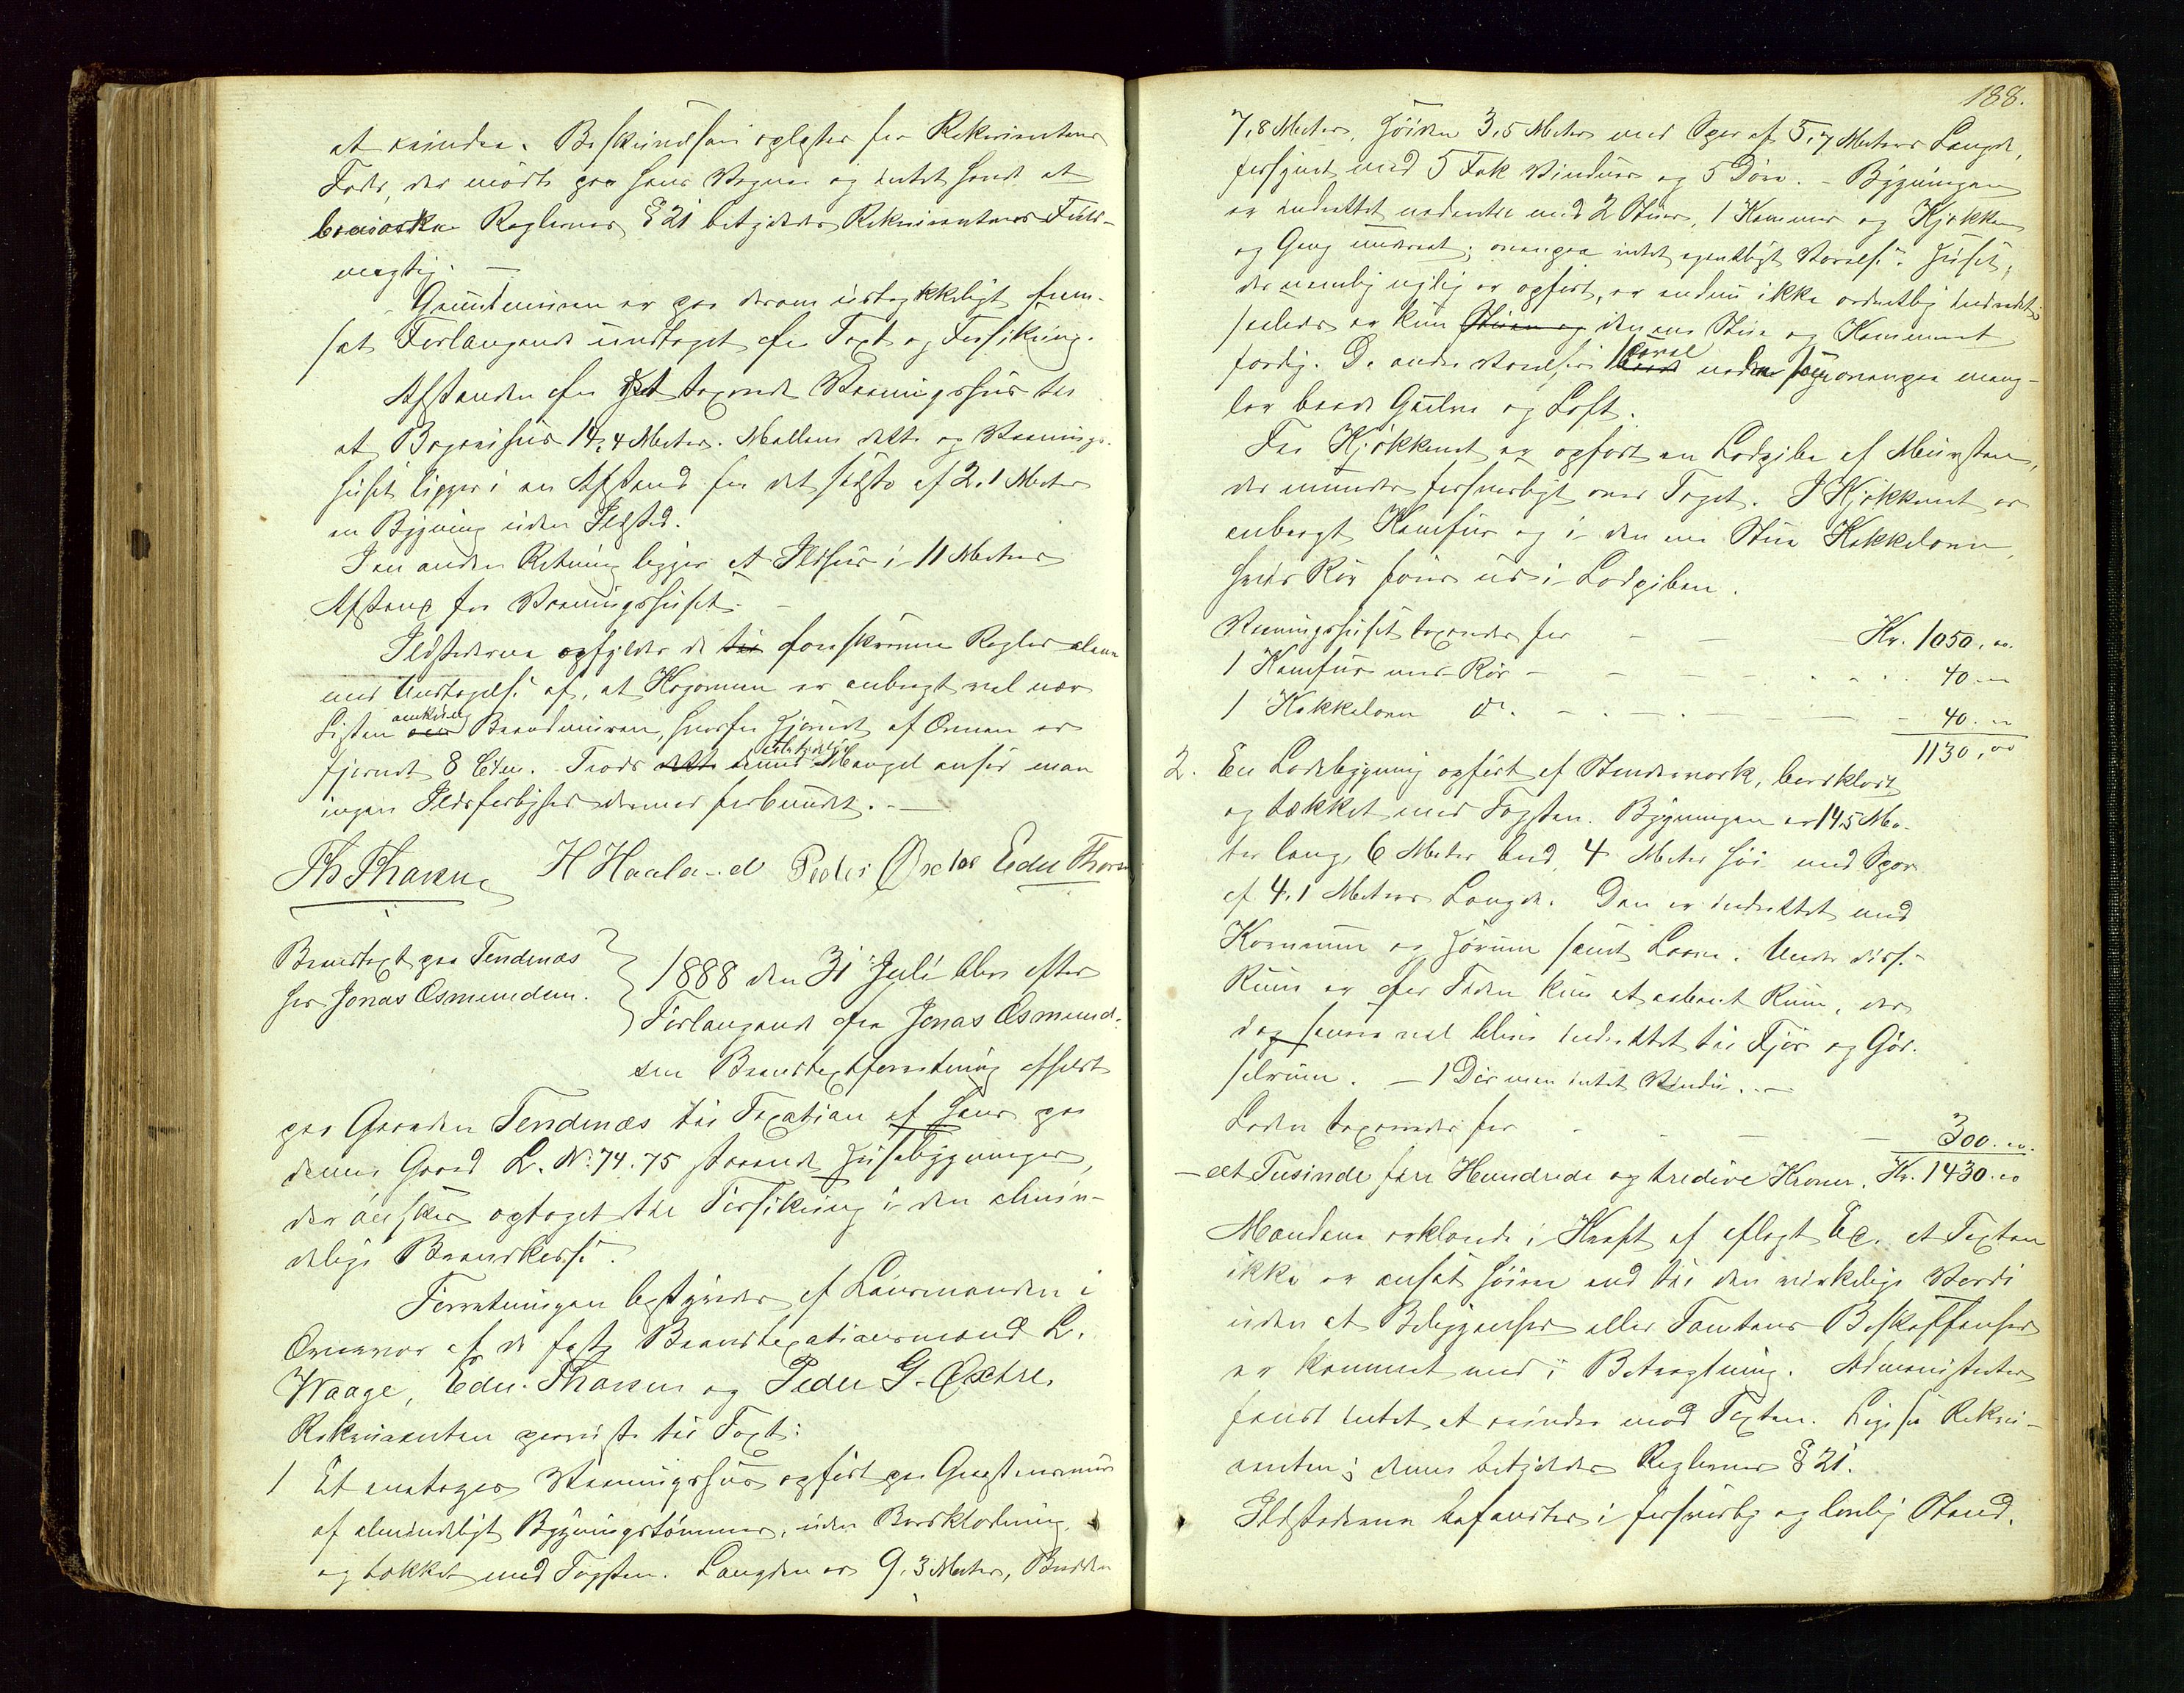 at erindre. Beskrivelsen oplæstes for Rekvirentens
Fader, der mødte paa hans Vegne og intet havde at
bemærke. Reglernes § 21 betydedes Rekvirentens Fuld-
mægtig. —
Grundmuren er paa derom udtrykkeligt frem-
sat Forlangende undtaget fra Taxt og Forsikring.
Afstanden fra det taxerede Vaaningshus til
et Bryggerhus 14,4 Meter. Mellem dette og Vaanings-
huset ligger i en Afstand fra det sidste af 2,1 Meter
en Bygning uden Ildsted.
I en anden Retning ligger et Ildhus i 11 Meters
Afstand fra Vaaningshuset. —
Ildstederne opfylder de foreskrevne Regler alene
med Undtagelse af, at Kogeovnen er anbragt vel nær
Listen omkring Brandmuren, hvorfra Hjørnet af Ovnen er
fjernet 8 Ctm. Trods denne Mangel anser man
ingen Ildsfarlighed dermed forbundet. —
Th Thorsen H Haaland Peder Øxtre Edv Thorsen
Brandtaxt paa Tendenæs
hos Jonas Osmundsen.
1888 den 31 Juli blev efter
Forlangende fra Jonas Osmund-
sen Brandtaxtforretning afholdt
paa Gaarden Tendenæs til Taxation af hans paa
denne Gaard L. No. 74.75 staaende Husebygninger,
der ønskes optaget til Forsikring i den almin-
delige Brandkasse.
Forretningen bestyredes af Lensmanden i
Overvær af de faste Brandtaxationsmænd L.
Waage, Edv. Thorsen og Peder G. Øxtre.
Rekvirenten paaviste til Taxt:
1 Et enetages Vaaningshus opført paa Graastensmur
af almindeligt Bygningstømmer, uden Bordklædning,
og tækket med Tagsten. Længden er 9,3 Meter, Bredden
188.
7,8 Meter, Høiden 3,5 Meter med Sper af 5,7 Meters Længde,
forsynet med 5 Fak Vinduer og 5 Døre. — Bygningen
er indrettet nedentil med 2 Stuer, 1 Kammer og Kjøkken
og Gang underet; ovenpaa intet egentligt Værelse. Huset,
der nemlig nylig er opført, er endnu ikke ordentlig indredet;
saaledes er kun den ene Stue og Kammeret
færdig. De andre Værelser saavel neden som ovenpaa mang-
ler baade Gulve og Loft.
Fra Kjøkkenet er opført en Ladpibe af Mursten,
der munder forsvarligt over Taget. I Kjøkkenet er
anbragt Komfur og i den ene Stue Kakkelovn,
hvis Rør føres ud i Ladpiben.
Vaaningshuset taxeredes for — — Kr. 1050,00.
1 Komfur med Rør — — — 40 —
1 Kakkelovn do. — — — 40. —
1130,00
2. En Ladebygning opført af Stendervark, bordklædt
og tækket med Tagsten. Bygningen er 14,5 Me-
ter lang, 6 Meter bred, 4 Meter høi med Sper
af 4,1 Meters Længde. Den er indrettet med
Kornrum og Hørum samt Laave. Under disse
Rum er for Tiden kun et aabent Rum, der
dog senere vil blive indrettet til Fjøs og Gjød-
selrum. — 1 Dør men intet Vindu. —
Laden taxeredes for — — — 300.00.
— et Tusinde fire Hundrede og tredive Kroner. Kr. 1430.00
Mændene erklærede i Kraft af aflagt Ed, at Taxten
ikke er ansat høiere end til den virkelige Værdi
uden at Beliggenhed eller Tomtens Beskaffenhed
er kommet med i Betragtning. Administrator
fandt intet at erindre mod Taxten. Ligesaa Rekvi-
renten; denne betydedes Reglernes § 21.
Ildstederne befandtes i forsvarlig og lovlig Stand.